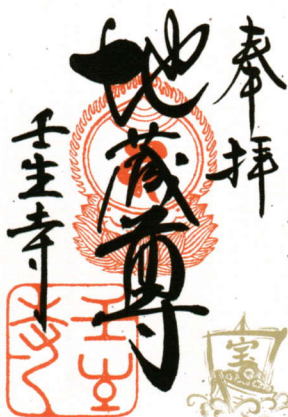 奉拝
地蔵尊
壬生寺
壬生寺
宝